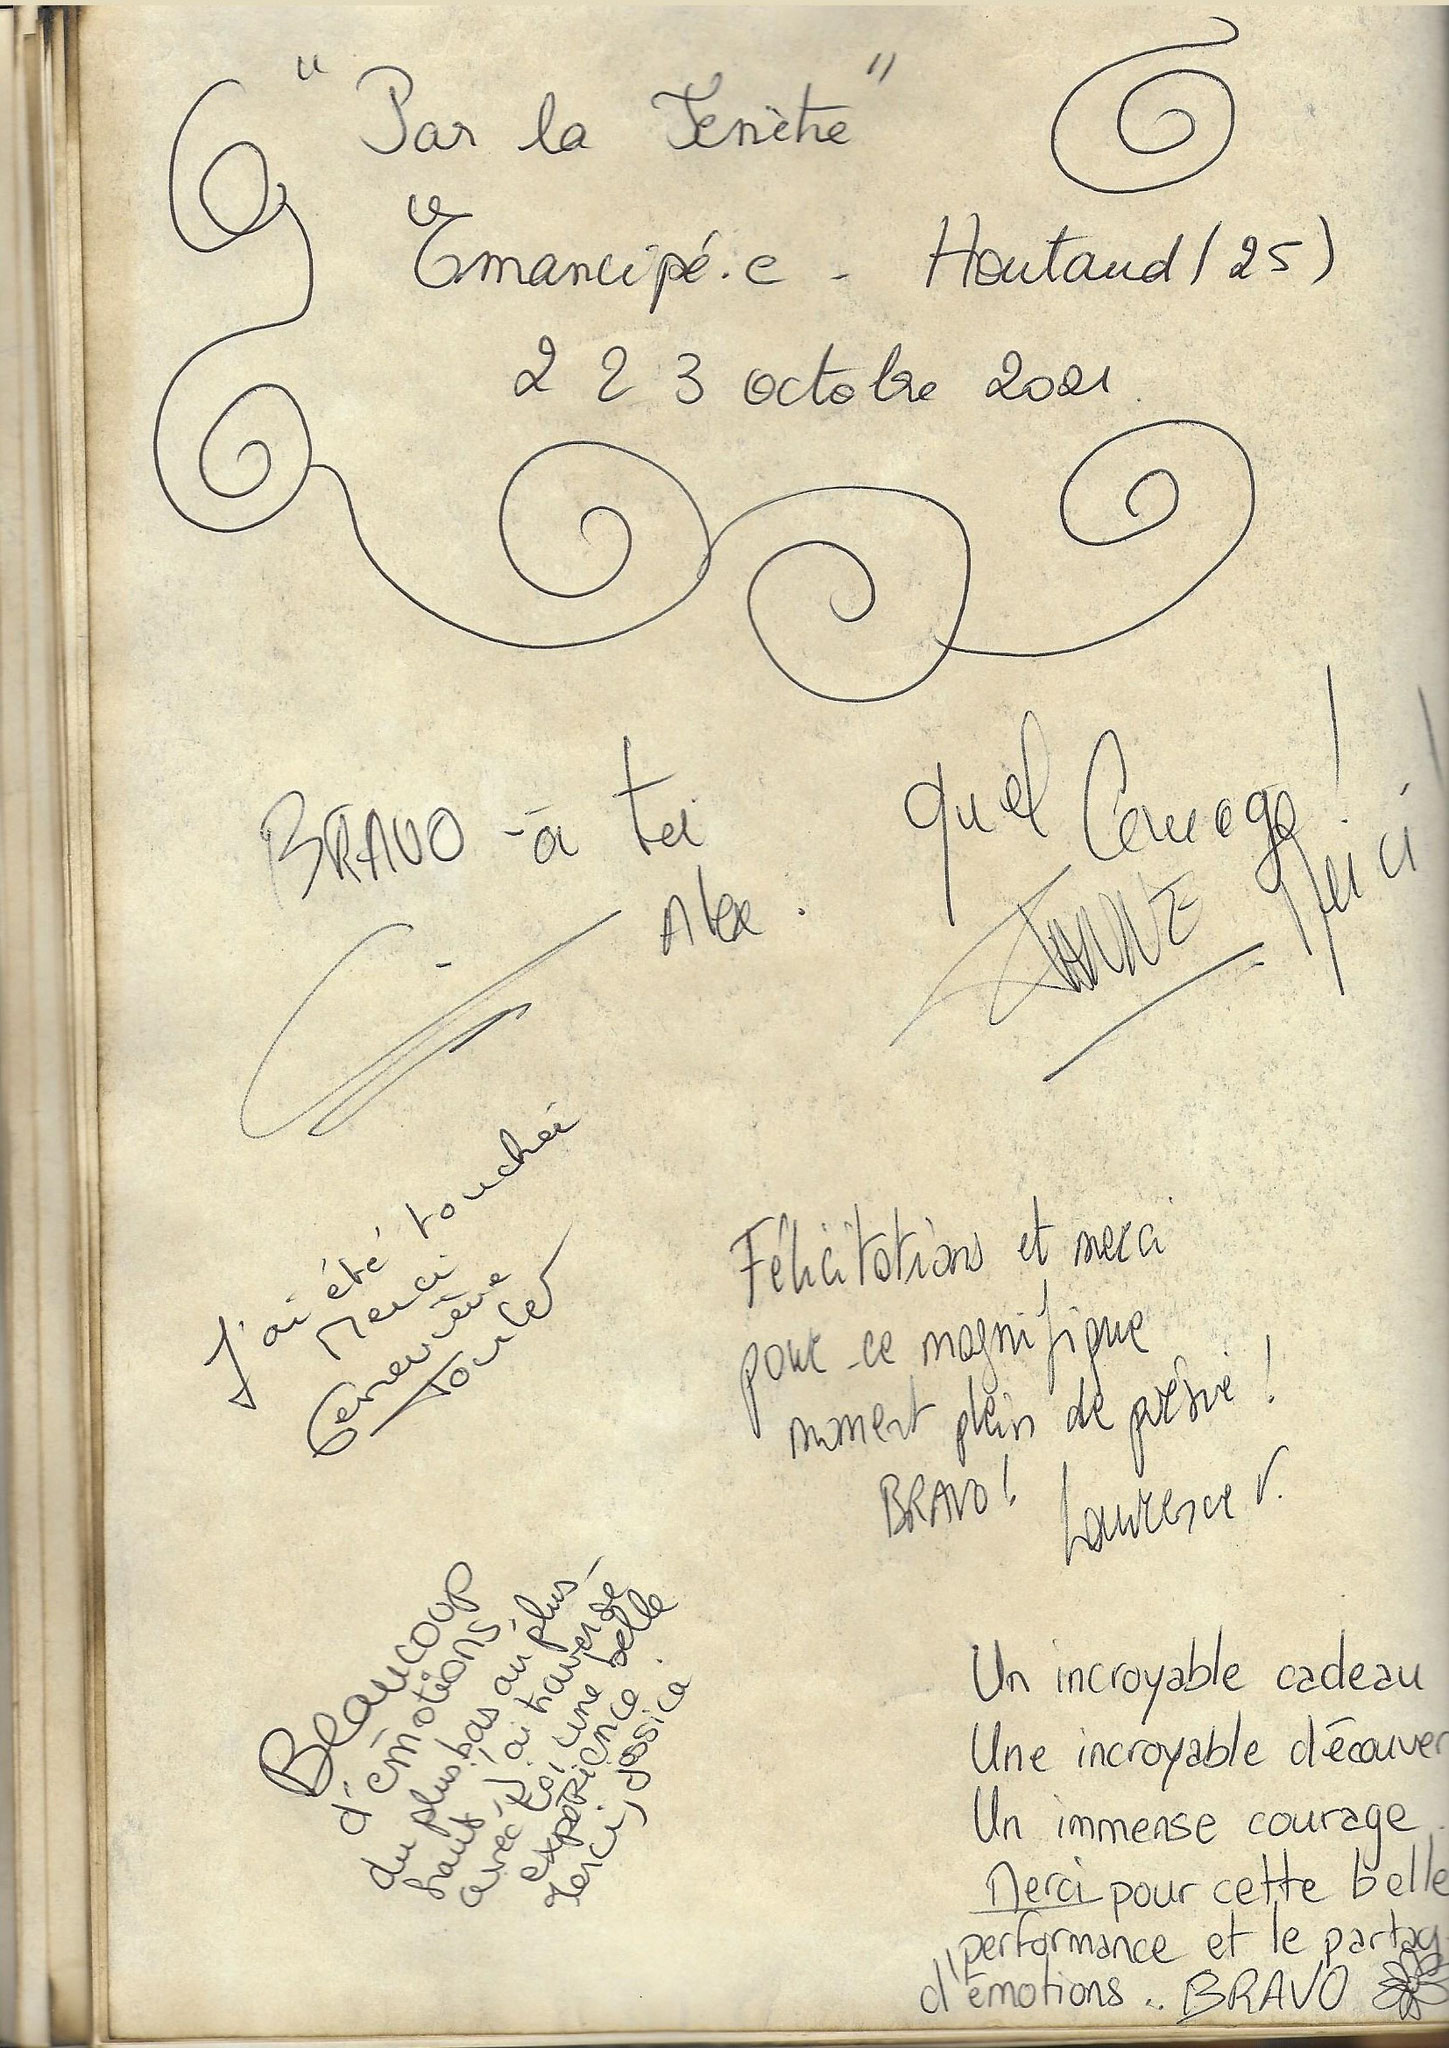 "Par la Fenêtre"
Emancipé.e - Houtaud (25)
2 & 3 octobre 2021.
BRAVO à toi
Alex.
quel Courage!
Merci
J'ai été touchée
Merci
Geneviève
Félicitations et merci
pour ce magnifique
moment plein de poésie!
BRAVO! Laurence V.
Beaucoup
d'émotions
du plus bas au plus
haut J'ai traversée
avec toi une belle
expérience.
Merci, Jessica.
Un incroyable cadeau
Une incroyable découver
Un immense courage.
Merci pour cette belle
performance et le partag
d'émotions .. BRAVO